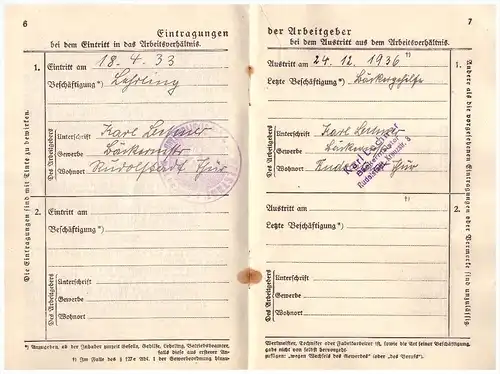 6
Eintragungen
bei dem Eintritt in das Arbeitsverhältnis.
1.
Eintritt am 18. 4. 33
Beschäftigung*) Lehrling
Des Arbeitgebers
Unterschrift Karl
Gewerbe Bäckermstr
Wohnort Rudolstadt Thür
2.
Eintritt am
Beschäftigung*)
Des Arbeitgebers
Unterschrift
Gewerbe
Wohnort
Die Eintragungen sind mit Tinte zu bewirken.
*) Anzugeben, ob der Inhaber zurzeit Geselle, Gehilfe, Lehrling, Betriebsbeamter,
falls diese aus ersterer
†) Im Falle des § Abs. 1 der Gewerbeordnung
7
der Arbeitgeber
bei dem Austritt aus dem Arbeitsverhältnis.
Austritt am 24. 12. 1936 †)
Letzte Beschäftigung*) Bäckergehilfe
1.
Des Arbeitgebers
Unterschrift Karl
Gewerbe
Wohnort Thür
Karl
Rudolstadt
Austritt am †)
Letzte Beschäftigung*)
2.
Des Arbeitgebers
Unterschrift
Gewerbe
Wohnort
Andere als die vorgesehenen Eintragungen oder Vermerke sind unzulässig.
Werkmeister, Techniker oder Fabrikarbeiter ist, sowie die Art seiner Beschäftigung,
gabe nicht von selbst hervorgeht.
„wegen Wechsels des Gewerbes“ oder „des Berufs“.